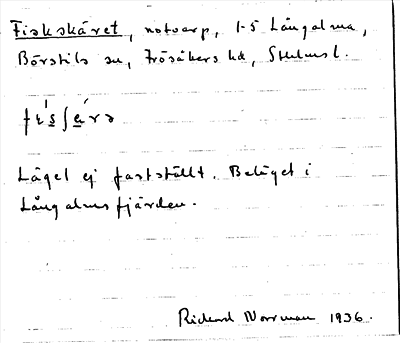 Fiskskäret, notvarp, 1-5 Långalma,
Börstils sn, Frösåkers hd, Sthlms l.
Läget ej fastställt. Beläget i
Långalmsfjärden.
Rickard Norrman 1936.